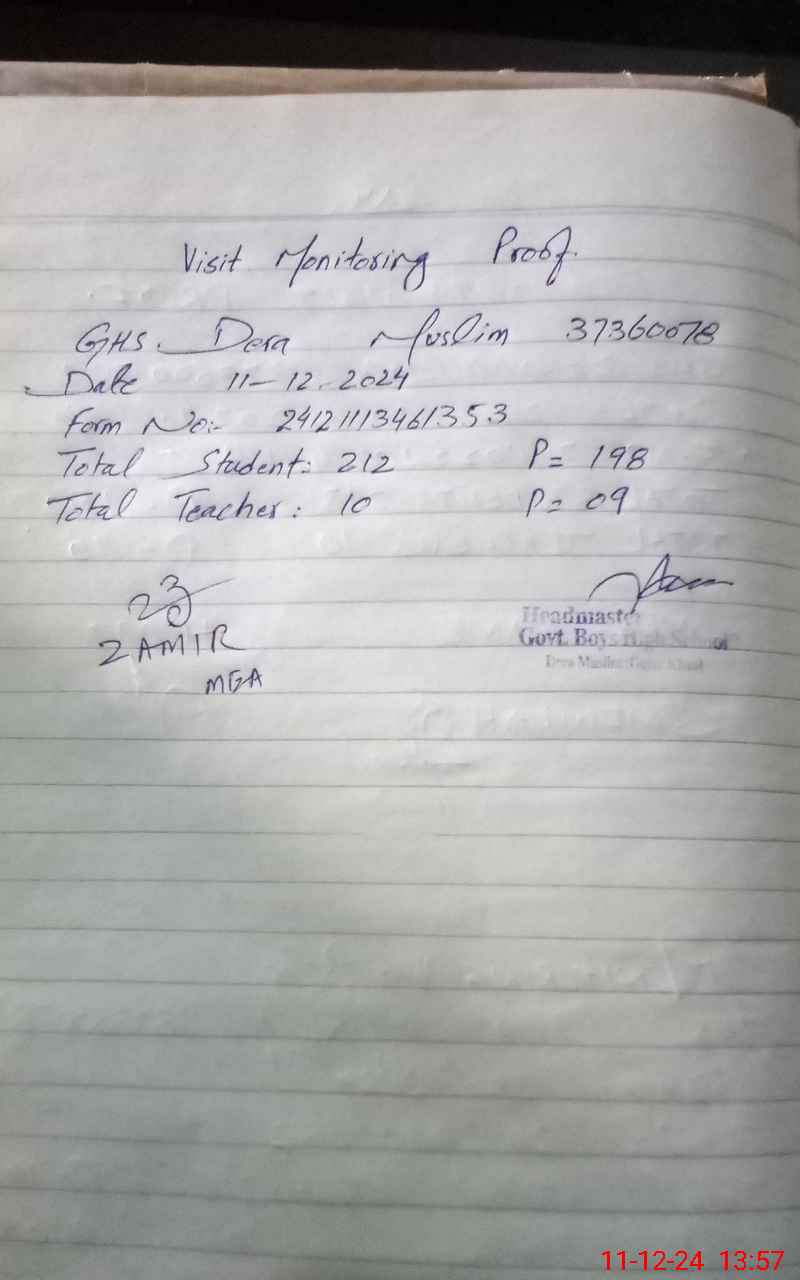 Visit Monitoring Proof.
GHS. Dera Muslim 37360078
Date 11-12-2024
Form No:- 24121113461353
Total Student: 212 P= 198
Total Teacher: 10 P= 09
ZAMIR
MEA
Headmaster
Govt. Boys High School
Dera Muslim Gujar Khan
11-12-24 13:57